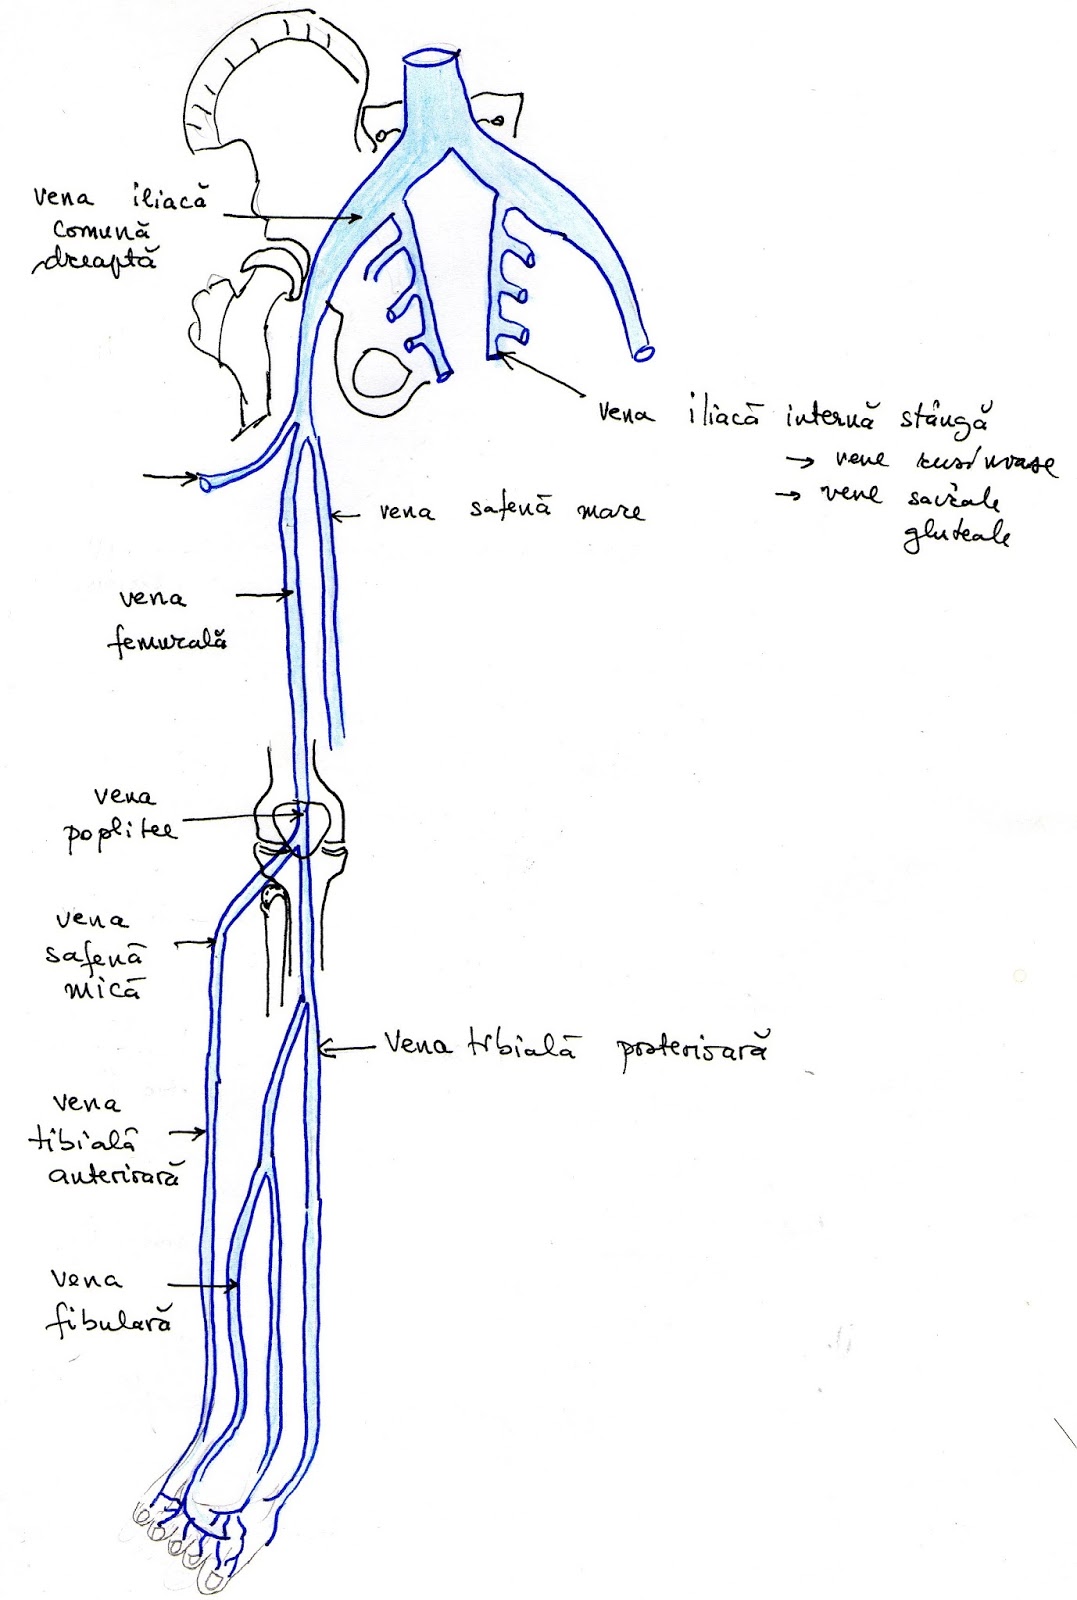 vena iliacă
comună
dreaptă
vena iliacă internă stângă
→ vene
→ vene sacrale
gluteale
← vena safenă mare
vena
femurală
vena
poplitee
vena
safenă
mică
Vena tibială posterioară
vena
tibială
anterioară
vena
fibulară